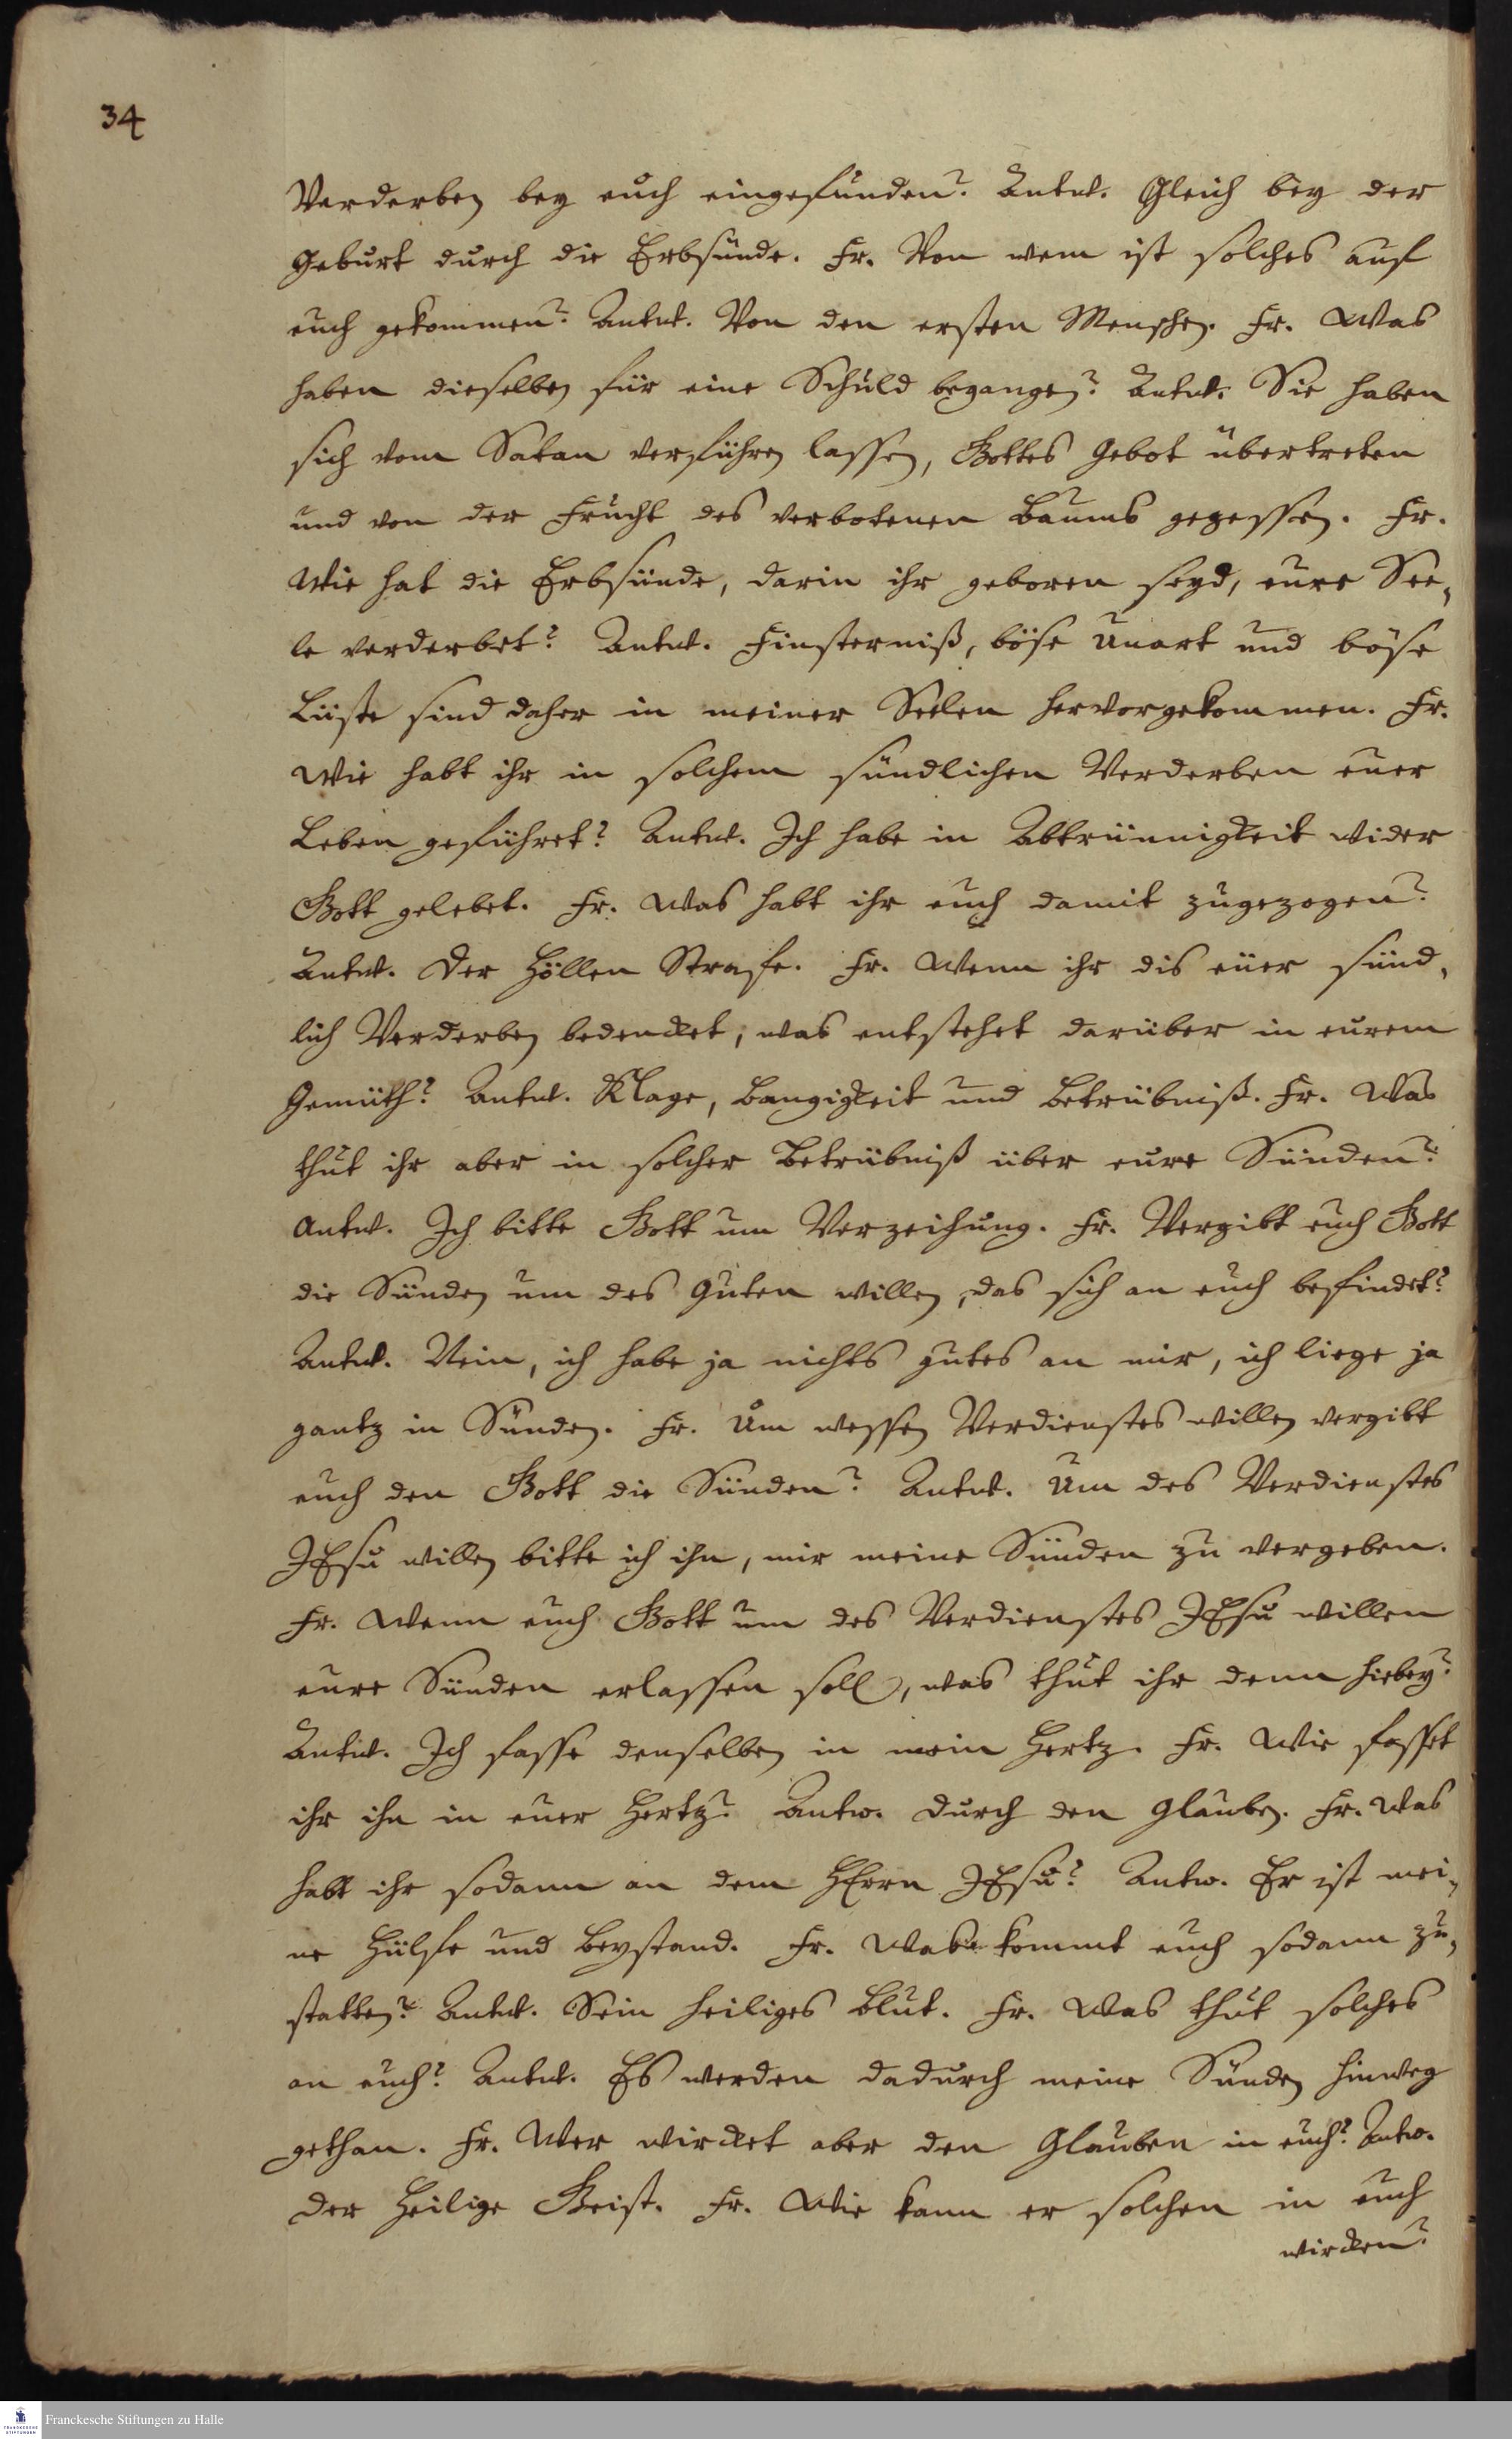 34
Verderben bey euch eingefunden? Antwt. Gleich bey der
Geburt durch die Erbsünde. Fr. Von wem ist solches auf
euch gekommen? Antwt. Von den ersten Menschen. Fr. Was
haben dieselben für eine Schuld begangen? Antwt. Sie haben
sich vom Satan verführen lassen, Gottes Gebot übertreten
und von der Frucht des verbotenen Baums gegessen. Fr.
Wie hat die Erbsünde, darin ihr geboren seyd, eure See-
le verderbet? Antwt. Finsterniß, böse Unart und böse
Lüste sind daher in meiner Seelen hervorgekommen. Fr.
Wie habt ihr in solchem sündlichen Verderben euer
Leben geführet? Antwt. Ich habe in Abtrünnigkeit wider
Gott gelebet. Fr. Was habt ihr euch damit zugezogen?
Antwt. Der Höllen Strafe. Fr. Wenn ihr dis euer sünd-
lich Verderben bedencket, was entstehet darüber in eurem
Gemüth? Antwt. Klage, Bangigkeit und Betrübniß. Fr. Was
thut ihr aber in solcher Betrübniß über eure Sünden?
Antwt. Ich bitte Gott um Verzeihung. Fr. Vergibt euch Gott
die Sünden um des Guten willen, das sich an euch befindet?
Antwt. Nein, ich habe ja nichts gutes an mir, ich liege ja
gantz in Sünden. Fr. Um wessen Verdienstes willen vergibt
euch den Gott die Sünden? Antwt. Um des Verdienstes
JEsu willen bitte ich ihn, mir meine Sünden zu vergeben.
Fr. Wenn euch Gott um des Verdienstes JEsu willen
eure Sünden erlassen soll, was thut ihr denn hiebey?
Antwt. Ich fasse denselben in mein Hertz. Fr. Wie fasset
ihr ihn in euer Hertz? Antw. Durch den Glauben. Fr. Was
habt ihr sodann an dem HErrn JEsu? Antw. Er ist mei-
ne Hülfe und Beystand. Fr. Was kommt euch sodann zu-
statten? Antwt. Sein heiliges Blut. Fr. Was thut solches
an euch? Antwt. Es werden dadurch meine Sünden hinweg
gethan. Fr. Wer wircket aber den Glauben in euch? Antw.
Der Heilige Geist. Fr. Wie kann er solchen in euch
wircken?
FRANCKESCHE STIFTUNGEN
Franckesche Stiftungen zu Halle